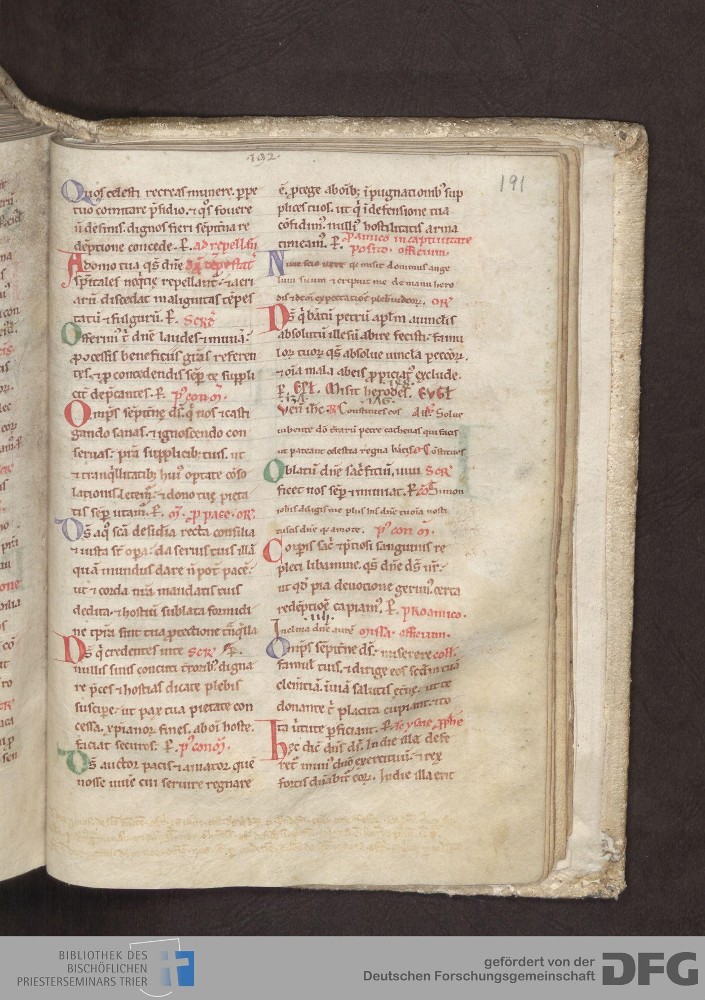 ·192·
191
Quos celesti recreas munere. ꝑpe
tuo comitare p̄sidio. ⁊ q̄s fouere
n̄ desinis. dignos fieri sēpit̄na re
dēptione concede. ꝑ. ad repellen̄
A domo tua q̄s dn̄e
sp̄itales neq̄tie repellant᷑. ⁊ aeri
arū discedat malignitas tēpes
tatū ⁊ fulgurū. ꝑ. Secr̄
Offerim᷒ t̄ dn̄e laudes ⁊ mun̄a.
ꝓ cōcessis beneficiis gr̄as referen
tes. ⁊ ꝓ concedendis sēꝑ te suppli
cit᷑ dep̄cantes. ꝑ. p᷒ com̄
Omp̄s sēpit̄ne ds̄. q̄ nos ⁊ casti
gando sanas. ⁊ ignoscendo con
seruas. p̄ta supplicib; tuis. ut
⁊ tranq̄llitatib; hui᷒ optate cōso
lationis letem᷑. ⁊ dono tue pieta
tis sēꝑ utam᷑. ꝑ. ꝓ pace. or̄.
Ds̄ a quo sc̄a desideria recta consilia
⁊ iusta st̄ oꝑa. da seruis tuis illā
quā mundus dare n̄ pot̄ pacē.
ut ⁊ corda n̄ra mandatis tuis
dedita. ⁊ hostiū sublata formidi
ne tp̄ra sint tua ꝓtectione t̄nq̄lla
Ds̄ q̄ credentes in te Secr̄
nullis sinis concuti t̄rorib; digna
re p̄ces ⁊ hostias dicate plebis
suscipe. ut pax tua pietate con
cessa. xp̄ianor̄ fines. ab om̄i hoste.
faciat securos. ꝑ. p᷒ com̄.
Ds̄ auctor pacis ⁊ amator quē
nosse uiuere cui seruire regnare
ē. ꝓtege ab om̄ib; īpugnationib᷒ sup
plices tuos. ut q̄ ī defensione tua
cōfidim᷒. nulli᷒ hostilitatis arma
timeam᷒. ꝑ. ꝓ amico in captiuitate
posito. officium.
Nunc scio uere quia misit dominus ange
lum suum ⁊ eripuit me de manu hero
dis ⁊ de om̄i expectatione plebis iudeor̄. Or̄
Ds̄ q̄ bātū petrū ap̄lm a uinclis
absolutū illesū abire fecisti. famu
lor̄ tuor̄ q̄s absolue uincla peccor̄.
⁊ om̄ia mala a beis ꝓpiciat᷒ exclude.
ꝑ. Ep̄l. Misit herodes. Evgl̄
Ven̄ ihc̄. Gr̄ Constitues eos Alt̄ Solue
iubente dō t̄rarū petre cathenas qui facis
ut pateant celestia regna bātis. of Constitues
Oblatū dn̄e sac̄ficiū. uiui Secr̄
ficet nos sēꝑ ⁊ muniat. ꝑ. cō Simon
iohīs diligis me plus his dn̄e tu om̄ia nosti
tu scis dn̄e quia amo te. p᷒ com̄.
Corꝑis sac̄ ⁊ p̄tiosi sanguinis re
pleti libamine. q̄s dn̄e ds̄ nr̄.
ut qd̄ pia deuotione gerim᷒. certa
redēptione capiam᷒. ꝑ. ꝓ amico.
Inclina dn̄e aurē missa. officium.
Omp̄s sēpit̄ne ds̄. miserere coll̄.
famul᷒ tuis. ⁊ dirige eos scd̄m tuā
clem̄tiā. ī uiā salutis et̄ne. ut te
donante t̄ placita cupiant. ⁊ to
ta uirtute ꝑficiant. ꝑ. Lc̄ ysaie ꝓph̄e
Hec dic̄ dn̄s ds̄. In die illa defe
fortis dn̄abit᷑ eor̄. In die illa erit
BIBLIOTHEK DES
BISCHÖFLICHEN
PRIESTERSEMINARS TRIER
gefördert von der
Deutschen Forschungsgemeinschaft
DFG